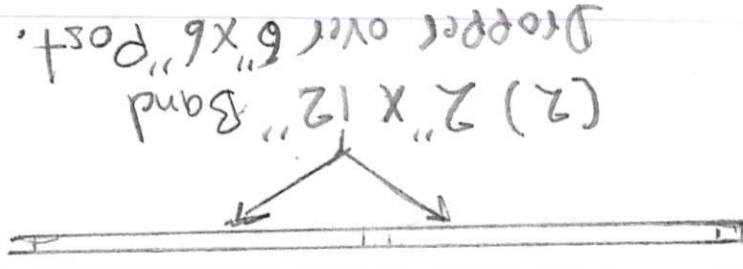 (2) 2" X 12" Band
Dropped over 6"X6" Post.